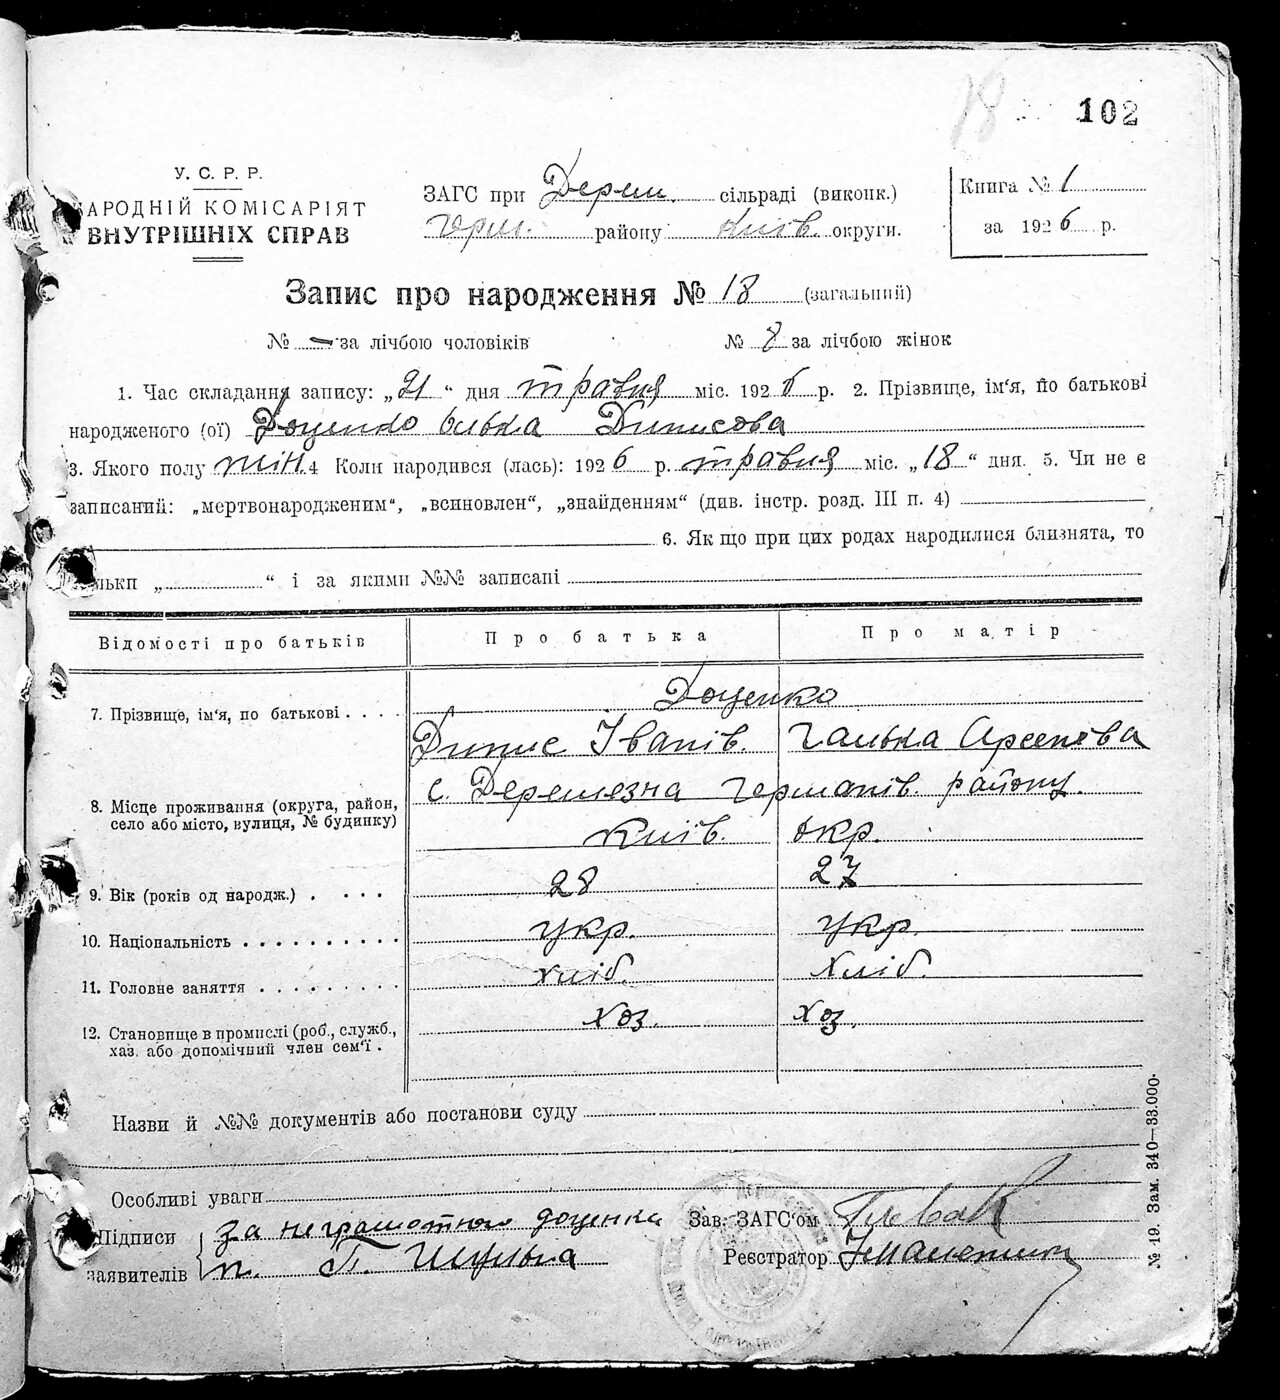 18 102
У. С. Р. Р.
АРОДНІЙ КОМІСАРІЯТ
ВНУТРІШНІХ СПРАВ
ЗАГС при Дерем. сільраді (виконк.)
Герм. району Київ. округи.
Книга № 1
за 1926 р.
Запис про народження № 18 (загальний)
№ — за лічбою чоловіків № 8 за лічбою жінок
1. Час складання запису: „21“ дня травня міс. 1926 р. 2. Прізвище, ім'я, по батькові
народженого (ої) Доценко Олька Дитисова
3. Якого полу жін. 4 Коли народився (лась): 1926 р. травня міс. „18“ дня. 5. Чи не є
записаний: „мертвонародженим“, „всиновлен“, „знайденням“ (див. інстр. розд. III п. 4)
6. Як що при цих родах народилися близнята, то
льки „ “ і за якими №№ записані
Відомості про батьків Про батька Про матір
7. Прізвище, ім'я, по батькові . . . . Доценко
Динис Іванів. Галька Арсенєва
8. Місце проживання (округа, район, село або місто, вулиця, № будинку) с. Деремезна Германів. району.
Київ. окр.
9. Вік (років од народж.) . . . . 28 27
10. Національність . . . . . . . . . . Укр. Укр.
11. Головне заняття . . . . . . . . . Хліб. Хліб.
12. Становище в промислі (роб., служб., хаз. або допомічний член сем'ї . Хоз. Хоз.
Назви й №№ документів або постанови суду
Особливі уваги
Підписи заявителів за неграмотного Доценка
п. Т. Шулька
Зав. ЗАГС'ом
Реєстратор
№ 19. Зам. 340—33.000.